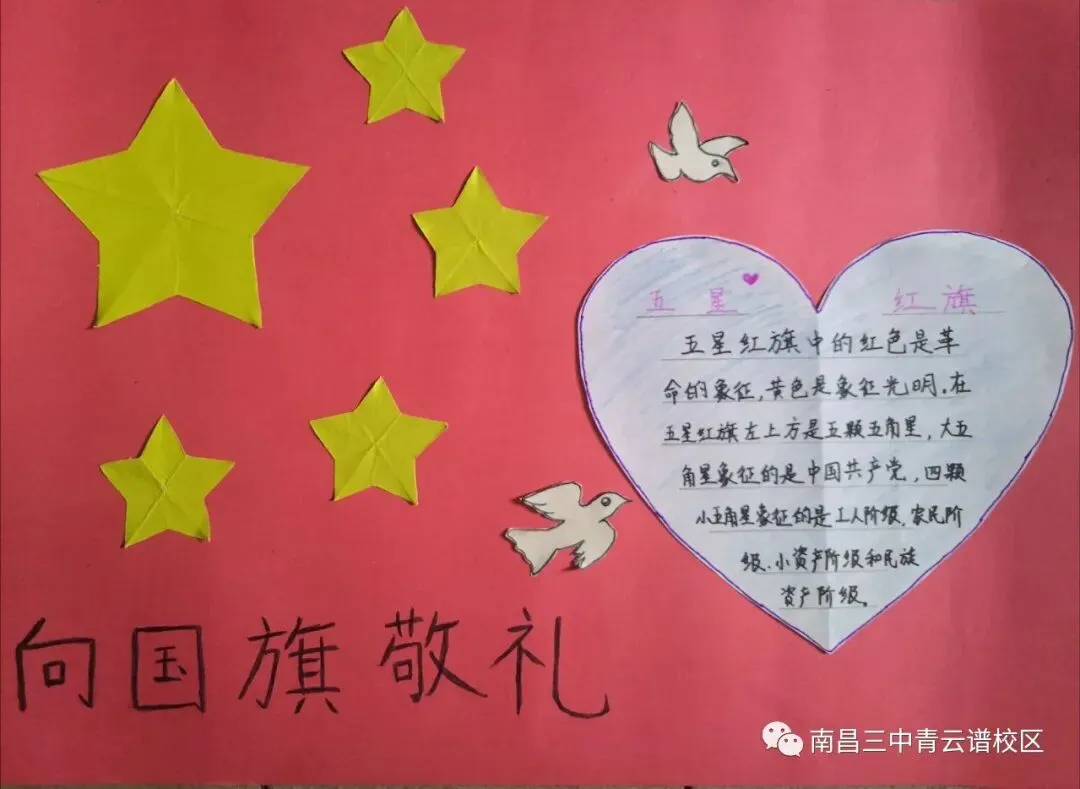 五星 红旗
五星红旗中的红色是革
命的象征,黄色是象征光明。在
五星红旗左上方是五颗五角星,大五
角星象征的是中国共产党,四颗
小五角星象征的是工人阶级、农民阶
级、小资产阶级和民族
资产阶级。
向国旗敬礼
南昌三中青云谱校区